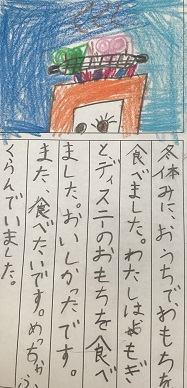 冬休みに、おうちでおもちを
食べました。わたしはよもぎ
と、ディズニーのおもちを食べ
ました。おいしかったです。
また、食べたいです。めっちゃふ
くらんでいました。